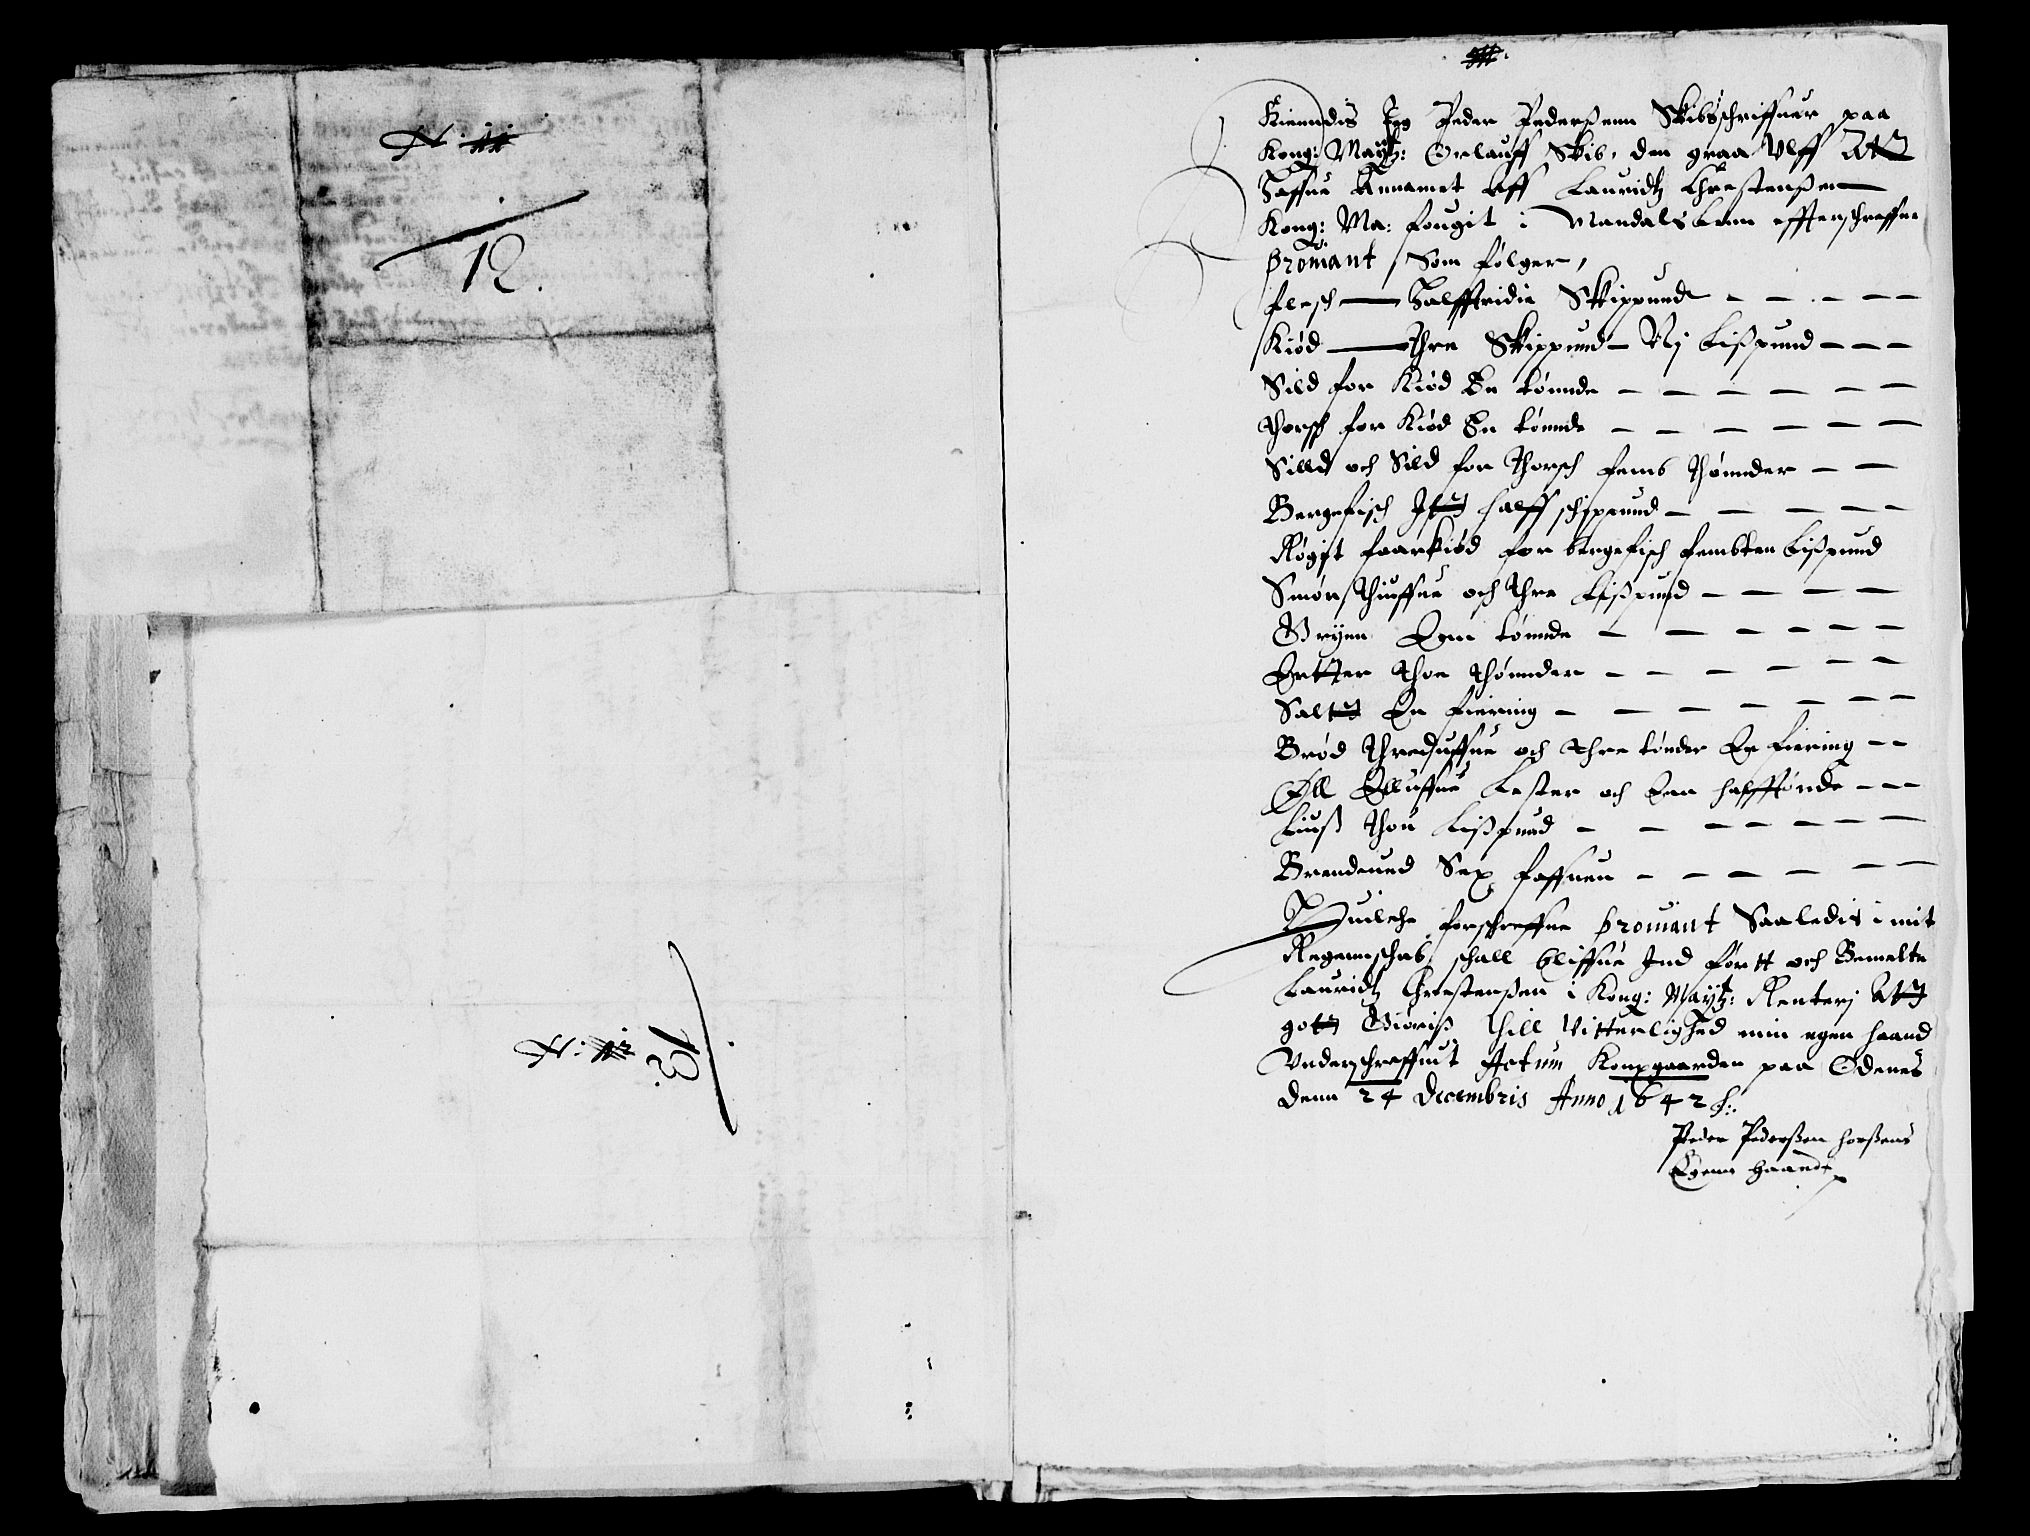 N: 11
12.
N: 12
13.
Kiendis Jeg Peder Pederßenn Skibsschriffuer paa
Kong: Maytz: Orlauff Skib, den graa Ulff Att
Haffue Annamet Aff Lauridtz Chrestenßen
Kong: Ma: fougit i Mandals Leen effterschreffne
Promant Som følger,
flesch — Halfftridie Skippund
Kiød — Thre Skippund — XVj Lißpund
Sild for Kiød En tønnde
Thorsch for Kiød En tønnde
Silld och Sild for Thorsch fembs Thønnder
Bergefisch It halff schippund
Røgit faarkiød for bergefisch fembten Lißpund
Smør Thiuffue och Thre Lißpund
Gryen Een tønnde
Ertter Thoe Thønnder
Saltt En fiering
Brød Thredsuffue och Thre tønder En fiering
Øll Elluffue Lester och Een halfftønde
Liuß Thou Lißpund
Brendeued Sex faffuen
Huilche forschreffne Promant Saaledis i mit
Regennschab schall bliffue Ind førtt och Bemelte
Lauridtz Chrestenßen i Kong: Maytz: Renterj Att
gott Giøriß Thill Vitterlighed min egen haand
Underschreffuit Actum Kongsgaarden paa Ødenes
denn 24 Decembris Anno 1642
Peder Pederßen Horßens
Egenn haand